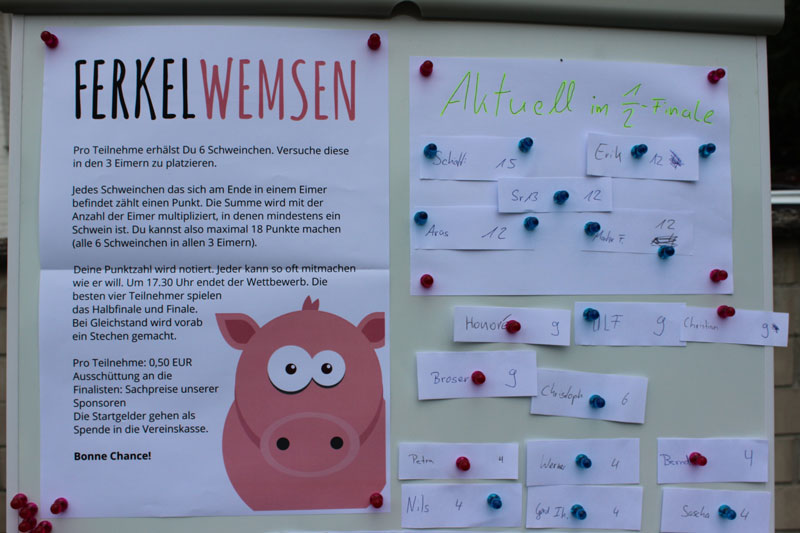 FERKELWEMSEN
Pro Teilnehme erhälst Du 6 Schweinchen. Versuche diese
in den 3 Eimern zu platzieren.
Jedes Schweinchen das sich am Ende in einem Eimer
befindet zählt einen Punkt. Die Summe wird mit der
Anzahl der Eimer multipliziert, in denen mindestens ein
Schwein ist. Du kannst also maximal 18 Punkte machen
(alle 6 Schweinchen in allen 3 Eimern).
Deine Punktzahl wird notiert. Jeder kann so oft mitmachen
wie er will. Um 17.30 Uhr endet der Wettbewerb. Die
besten vier Teilnehmer spielen
das Halbfinale und Finale.
Bei Gleichstand wird vorab
ein Stechen gemacht.
Pro Teilnehme: 0,50 EUR
Ausschüttung an die
Finalisten: Sachpreise unserer
Sponsoren
Die Startgelder gehen als
Spende in die Vereinskasse.
Bonne Chance!
Aktuell im 1/2-Finale
15
Erik 12
12
Aras 12
12
Honoré 9
9
Christian 9
Broser 9
Christoph 6
Petra 4
Werner 4
Bernd 4
Nils 4
4
Sascha 4